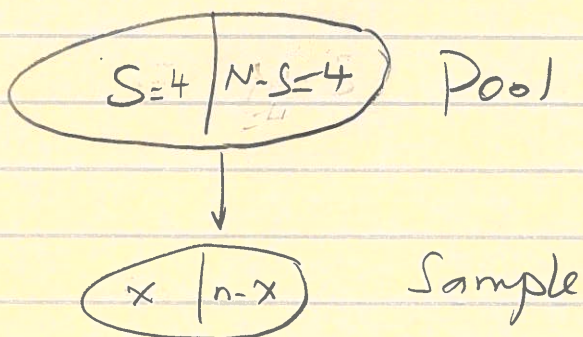 S=4 N-S=4 Pool
=4
x n-x Sample